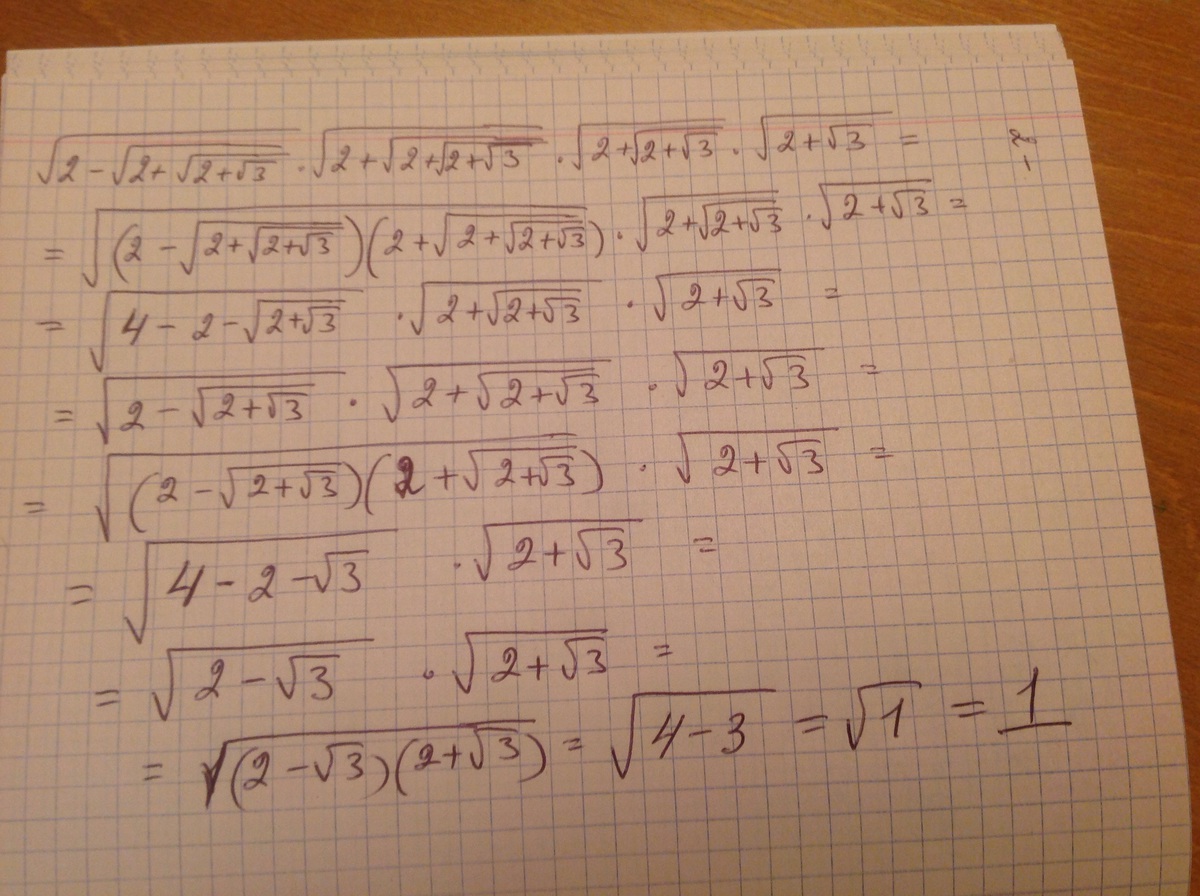 √(2-√(2+√(2+√3))) · √(2+√(2+√(2+√3))) · √(2+√(2+√3)) · √(2+√3) =
= √((2-√(2+√(2+√3)))(2+√(2+√(2+√3)))) · √(2+√(2+√3)) · √(2+√3) =
= √(4-2-√(2+√3)) · √(2+√(2+√3)) · √(2+√3) =
= √(2-√(2+√3)) · √(2+√(2+√3)) · √(2+√3) =
= √((2-√(2+√3))(2+√(2+√3))) · √(2+√3) =
= √(4-2-√3) · √(2+√3) =
= √(2-√3) · √(2+√3) =
= √((2-√3)(2+√3)) = √(4-3) = √1 = 1